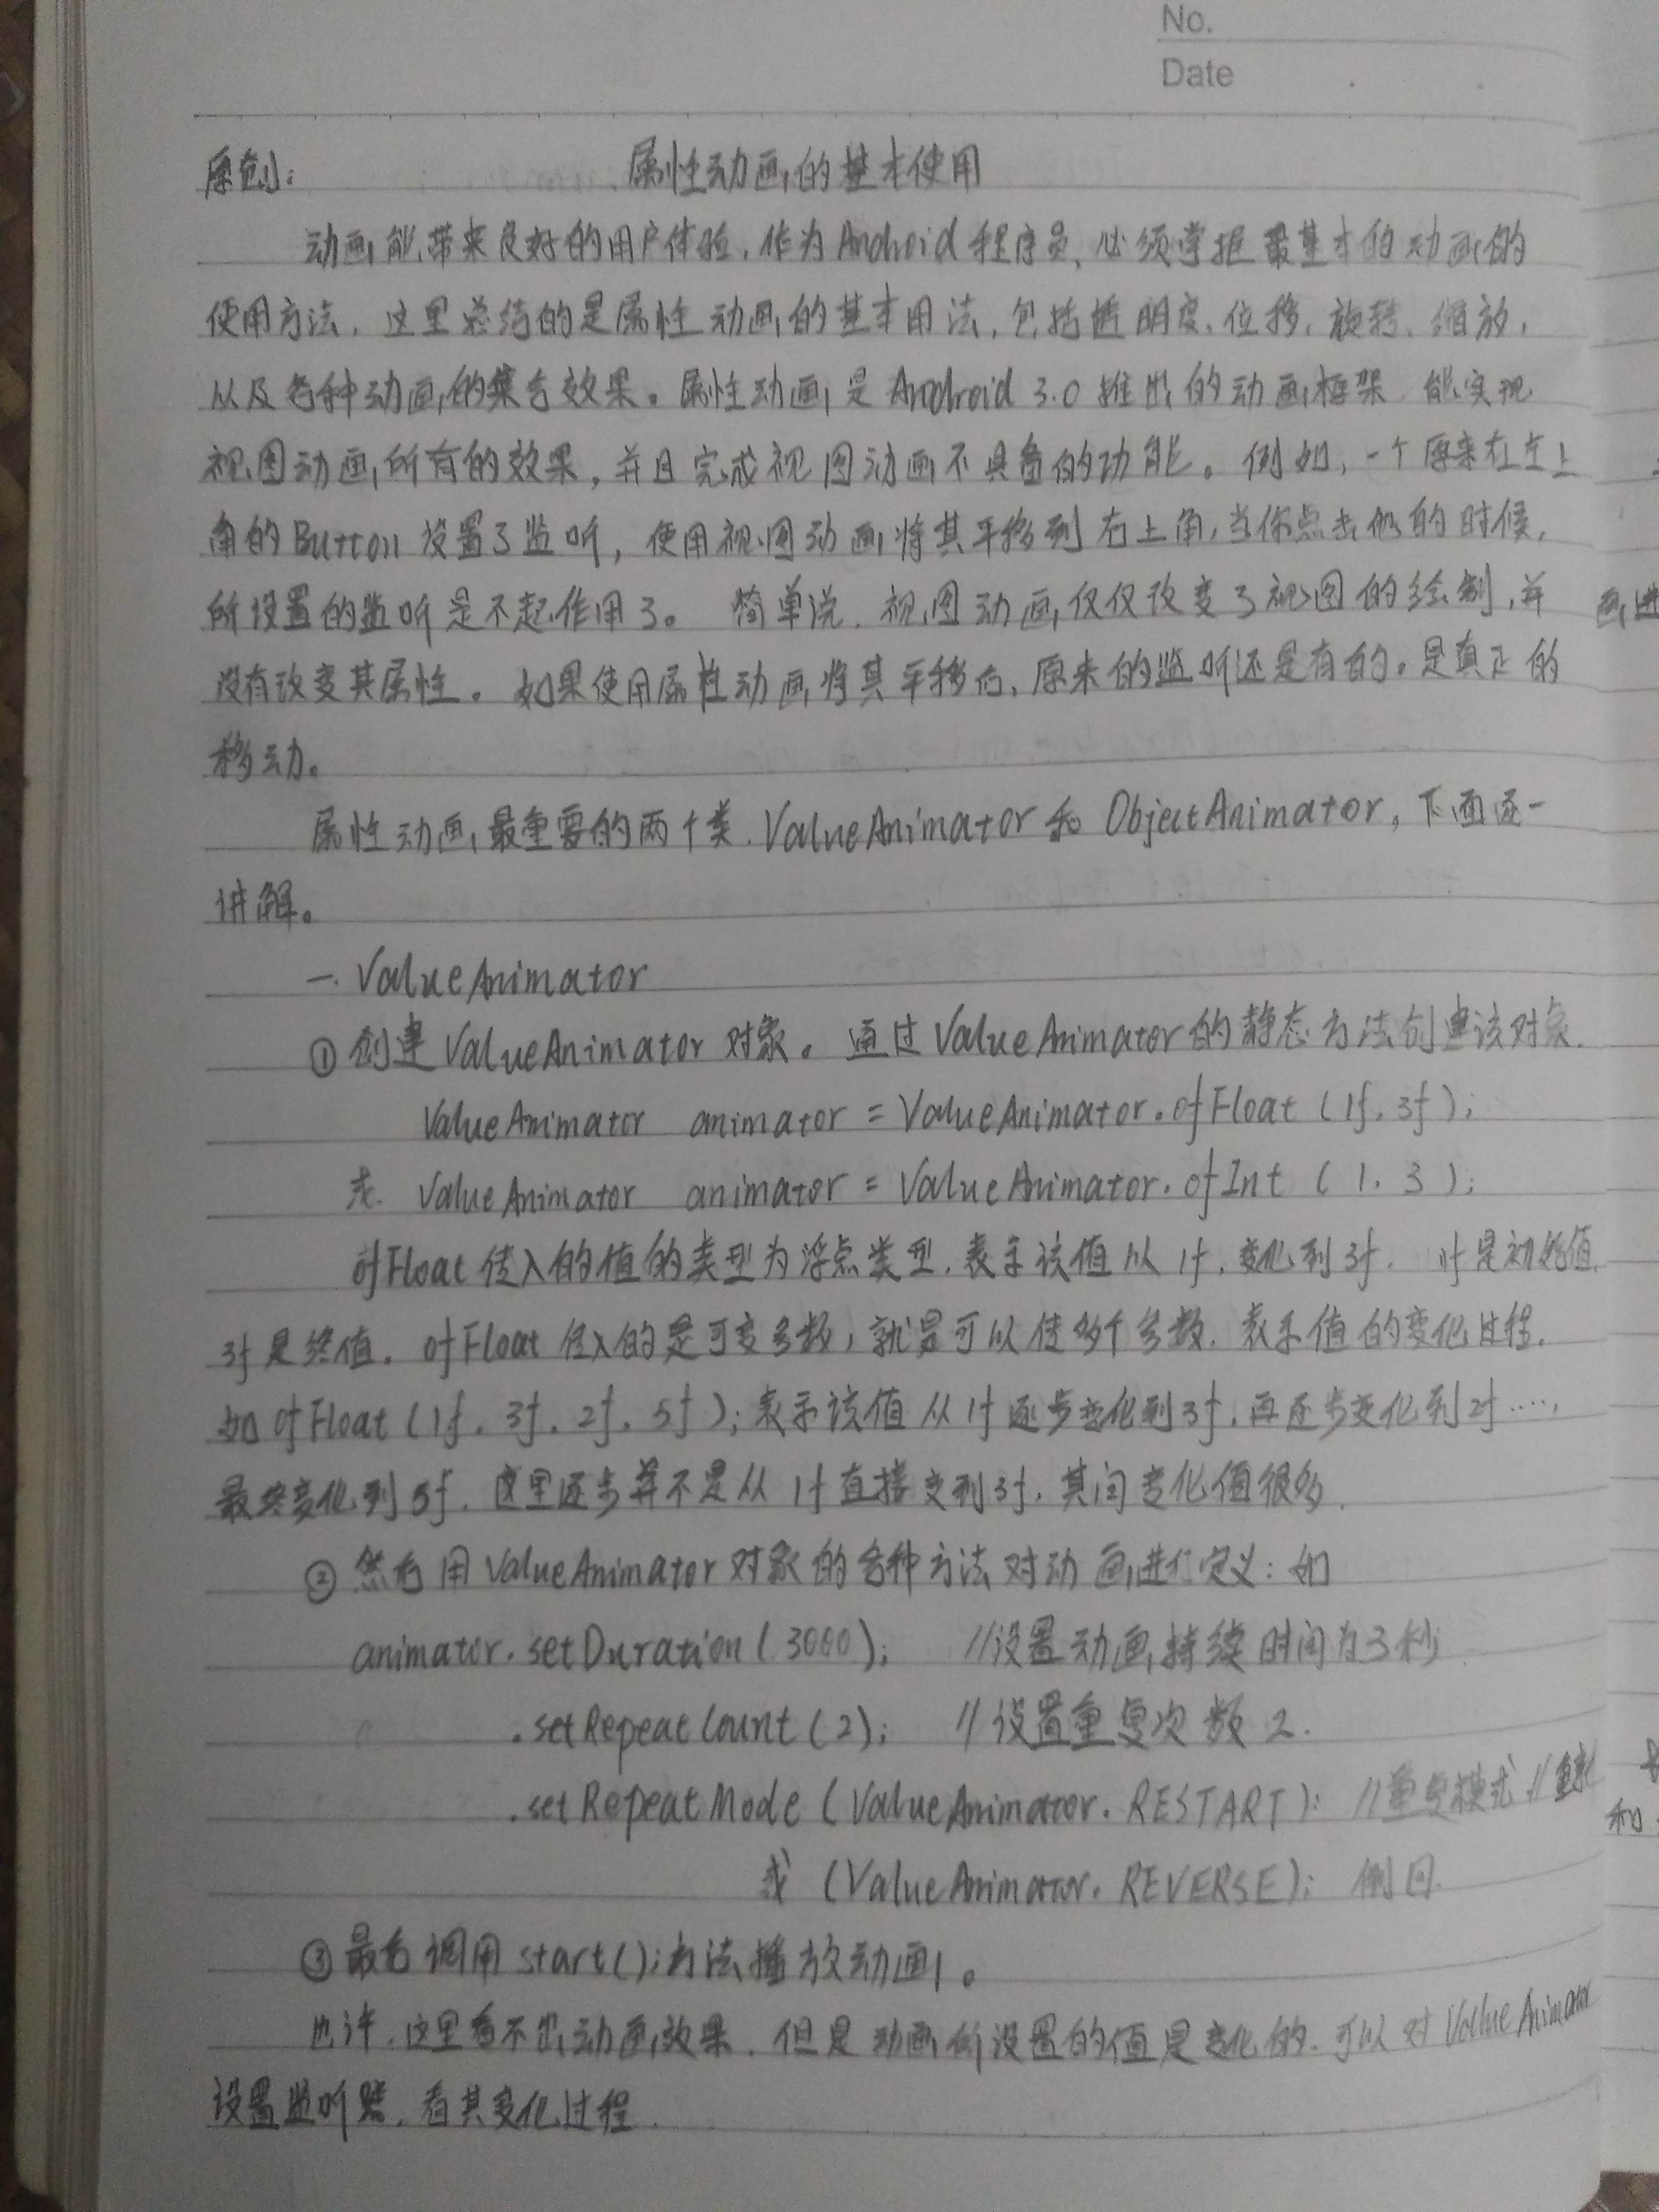 No.
Date
原创: 属性动画的基本使用
动画能带来良好的用户体验,作为Android程序员,必须掌握最基本的动画的
使用方法,这里总结的是属性动画的基本用法,包括透明度、位移、旋转、缩放,
以及各种动画的集合效果。属性动画是Android 3.0推出的动画框架,能实现
视图动画所有的效果,并且完成视图动画不具备的功能。例如,一个原来在左上
角的Button设置了监听,使用视图动画将其平移到右上角,当你点击他的时候,
所设置的监听是不起作用了。简单说,视图动画仅仅改变了视图的绘制,并
没有改变其属性。如果使用属性动画将其平移后,原来的监听还是有的。是真正的
移动。
属性动画最重要的两个类.ValueAnimator和ObjectAnimator,下面逐一
讲解。
一.ValueAnimator
①创建ValueAnimator对象。通过ValueAnimator的静态方法创建该对象.
ValueAnimator animator = ValueAnimator.ofFloat (1f, 3f);
或. ValueAnimator animator = ValueAnimator.ofInt (1, 3);
ofFloat传入的值的类型为浮点类型,表示该值从1f,变化到3f. 1f是初始值,
3f是终值。ofFloat传入的是可变参数,就是可以传多个参数.表示值的变化过程.
如ofFloat(1f, 3f, 2f, 5f);表示该值从1f逐步变化到3f,再逐步变化到2f····,
最终变化到5f.这里逐步并不是从1f直接变到3f,其间变化值很多.
②然后用ValueAnimator对象的各种方法对动画进行定义:如
animator.setDuration(3000); //设置动画持续时间为3秒
.setRepeatCount(2); //设置重复次数2.
.setRepeatMode(ValueAnimator.RESTART); //重复模式 //重新
或 (ValueAnimator.REVERSE); 倒回.
③最后调用start();方法播放动画。
也许,这里看不出动画效果,但是动画所设置的值是变化的.可以对ValueAnimator
设置监听器,看其变化过程.
画进
和